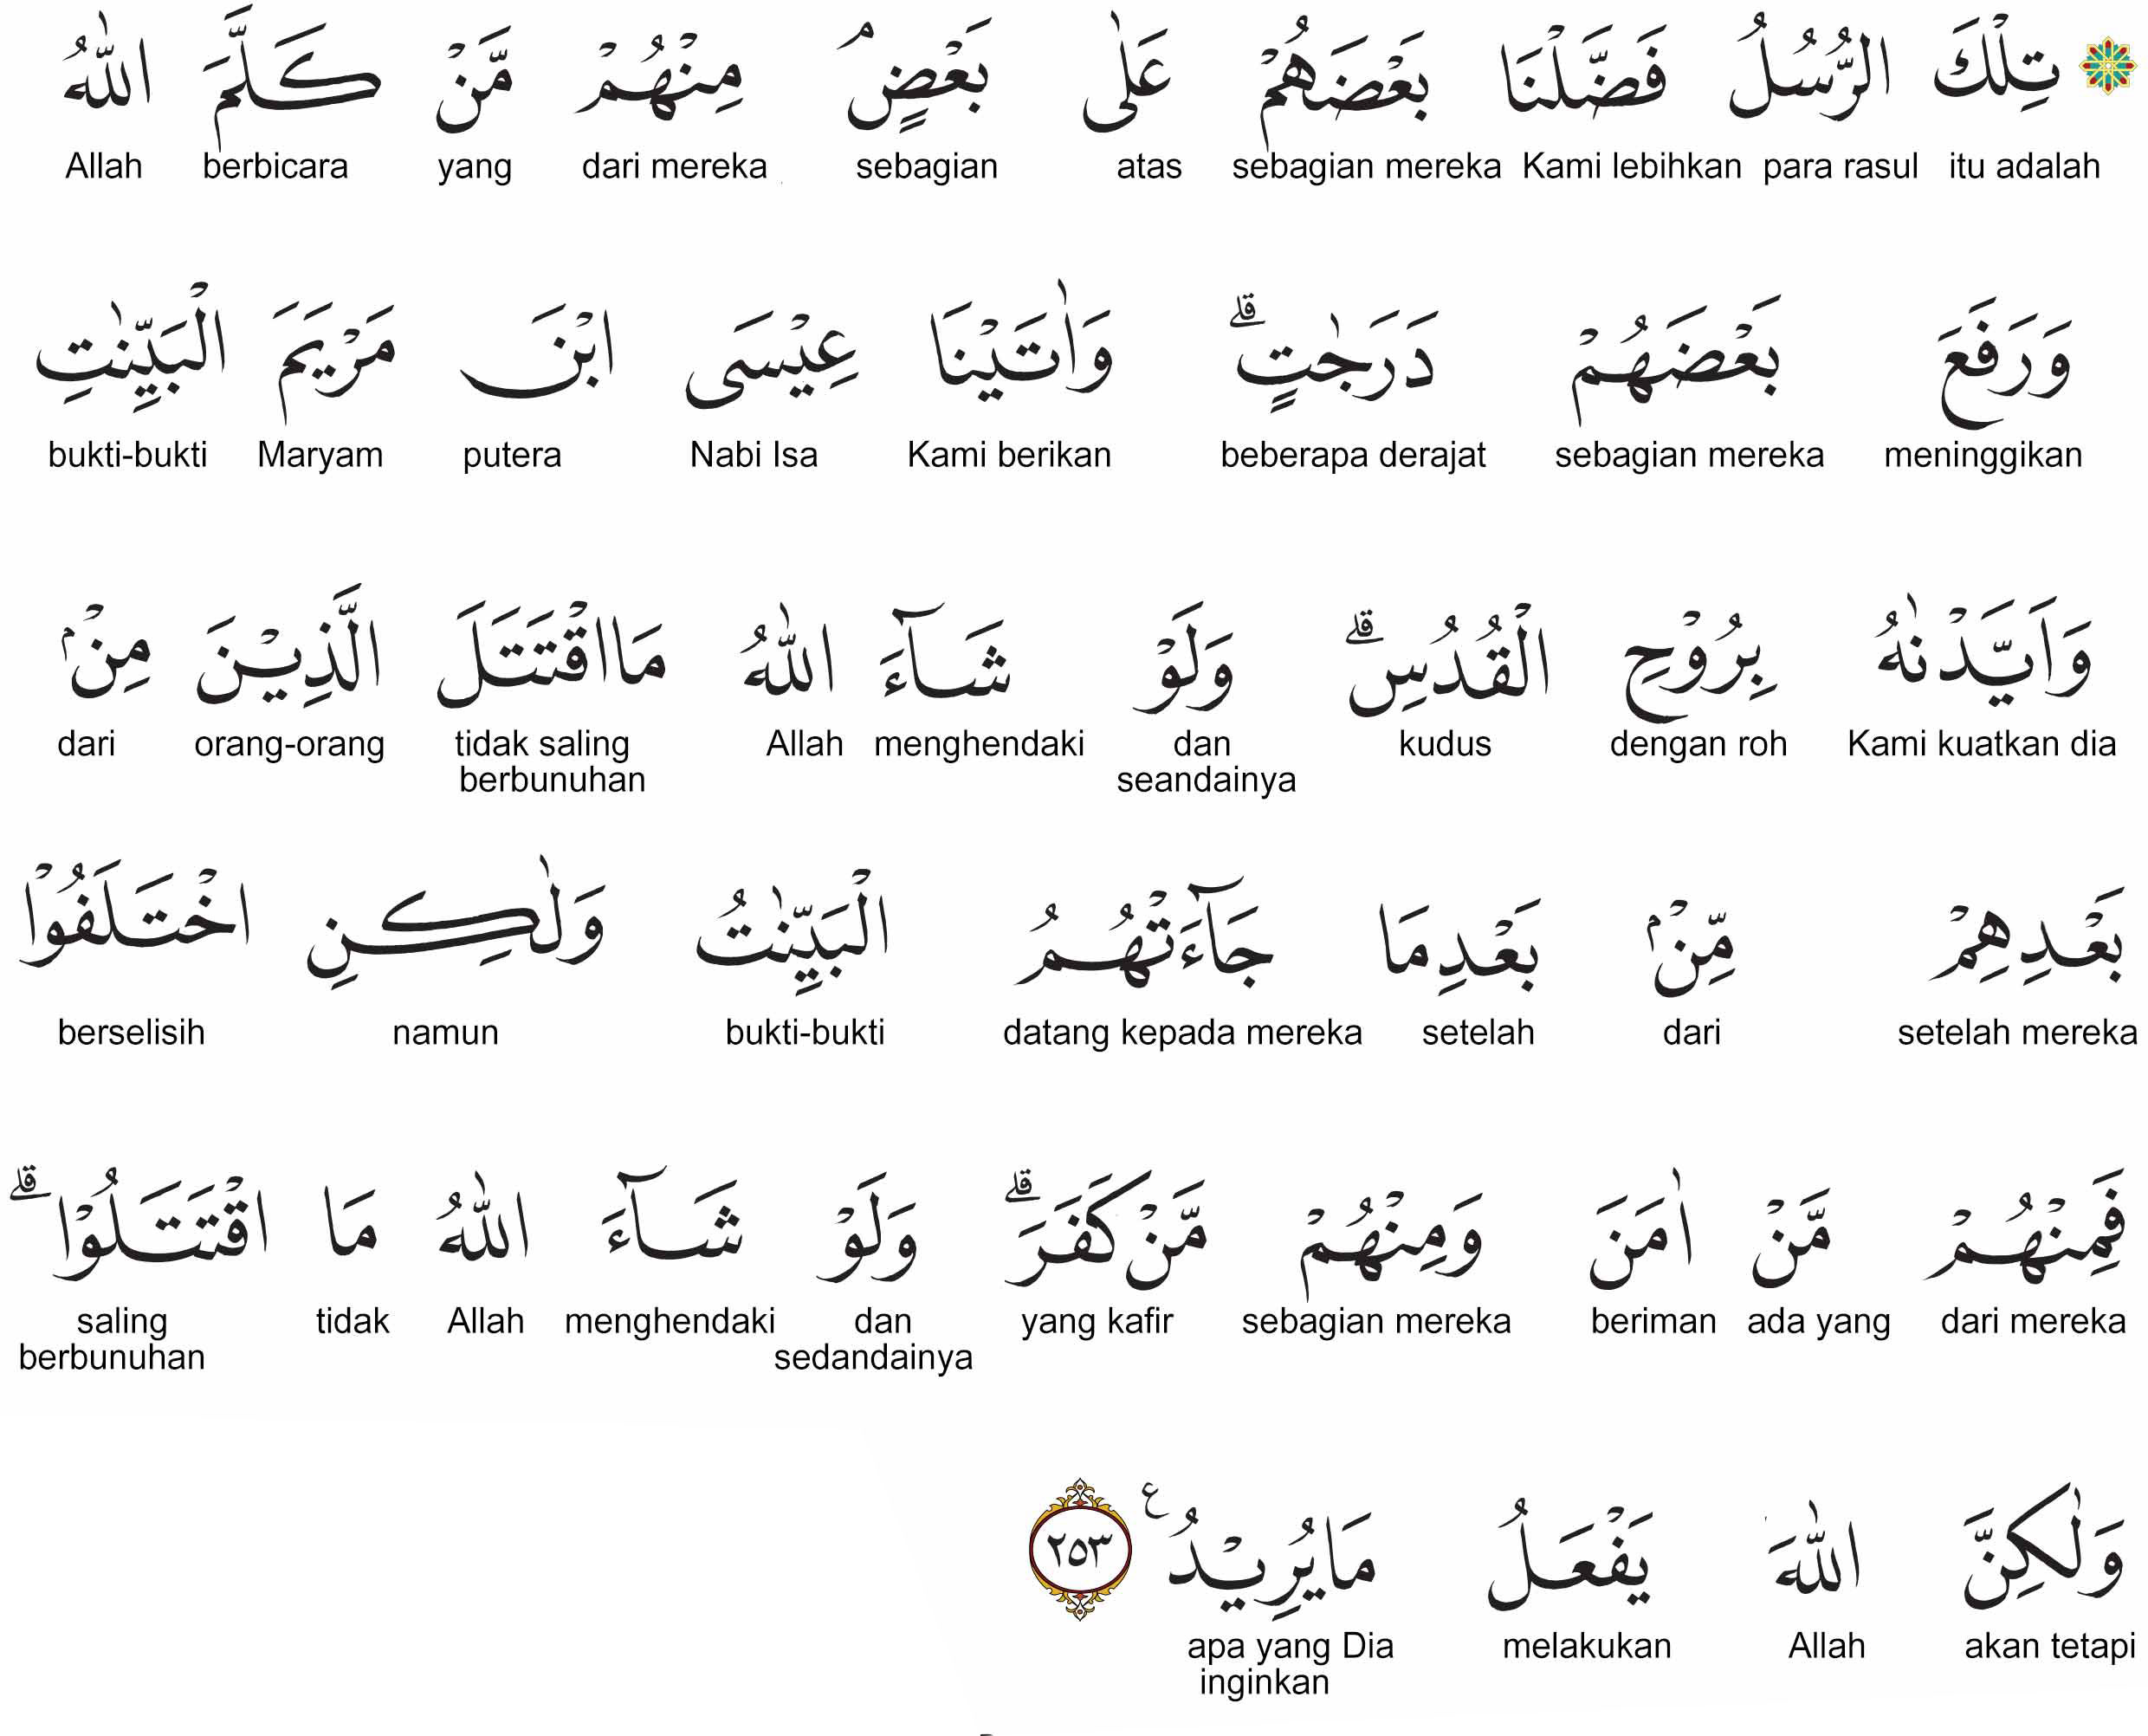 تِلْكَ الرُّسُلُ فَضَّلْنَا بَعْضَهُمْ عَلٰى بَعْضٍۘ مِنْهُمْ مَّنْ كَلَّمَ اللّٰهُ
itu adalah para rasul Kami lebihkan sebagian mereka atas sebagian dari mereka yang berbicara Allah
وَرَفَعَ بَعْضَهُمْ دَرَجٰتٍۗ وَاٰتَيْنَا عِيْسَى ابْنَ مَرْيَمَ الْبَيِّنٰتِ
meninggikan sebagian mereka beberapa derajat Kami berikan Nabi Isa putera Maryam bukti-bukti
وَاَيَّدْنٰهُ بِرُوْحِ الْقُدُسِۗ وَلَوْ شَاۤءَ اللّٰهُ مَااقْتَتَلَ الَّذِيْنَ مِنْۢ
Kami kuatkan dia dengan roh kudus dan menghendaki Allah tidak saling orang-orang dari
seandainya berbunuhan
بَعْدِهِمْ مِّنْۢ بَعْدِمَا جَاۤءَتْهُمُ الْبَيِّنٰتُ وَلٰكِنِ اخْتَلَفُوْا
setelah mereka dari setelah datang kepada mereka bukti-bukti namun berselisih
فَمِنْهُمْ مَّنْ اٰمَنَ وَمِنْهُمْ مَّنْ كَفَرَۗ وَلَوْ شَاۤءَ اللّٰهُ مَا اقْتَتَلُوْاۗ
dari mereka ada yang beriman sebagian mereka yang kafir dan menghendaki Allah tidak saling
sedandainya berbunuhan
وَلٰكِنَّ اللّٰهَ يَفْعَلُ مَايُرِيْدُ ع ٢٥٣
akan tetapi Allah melakukan apa yang Dia
inginkan